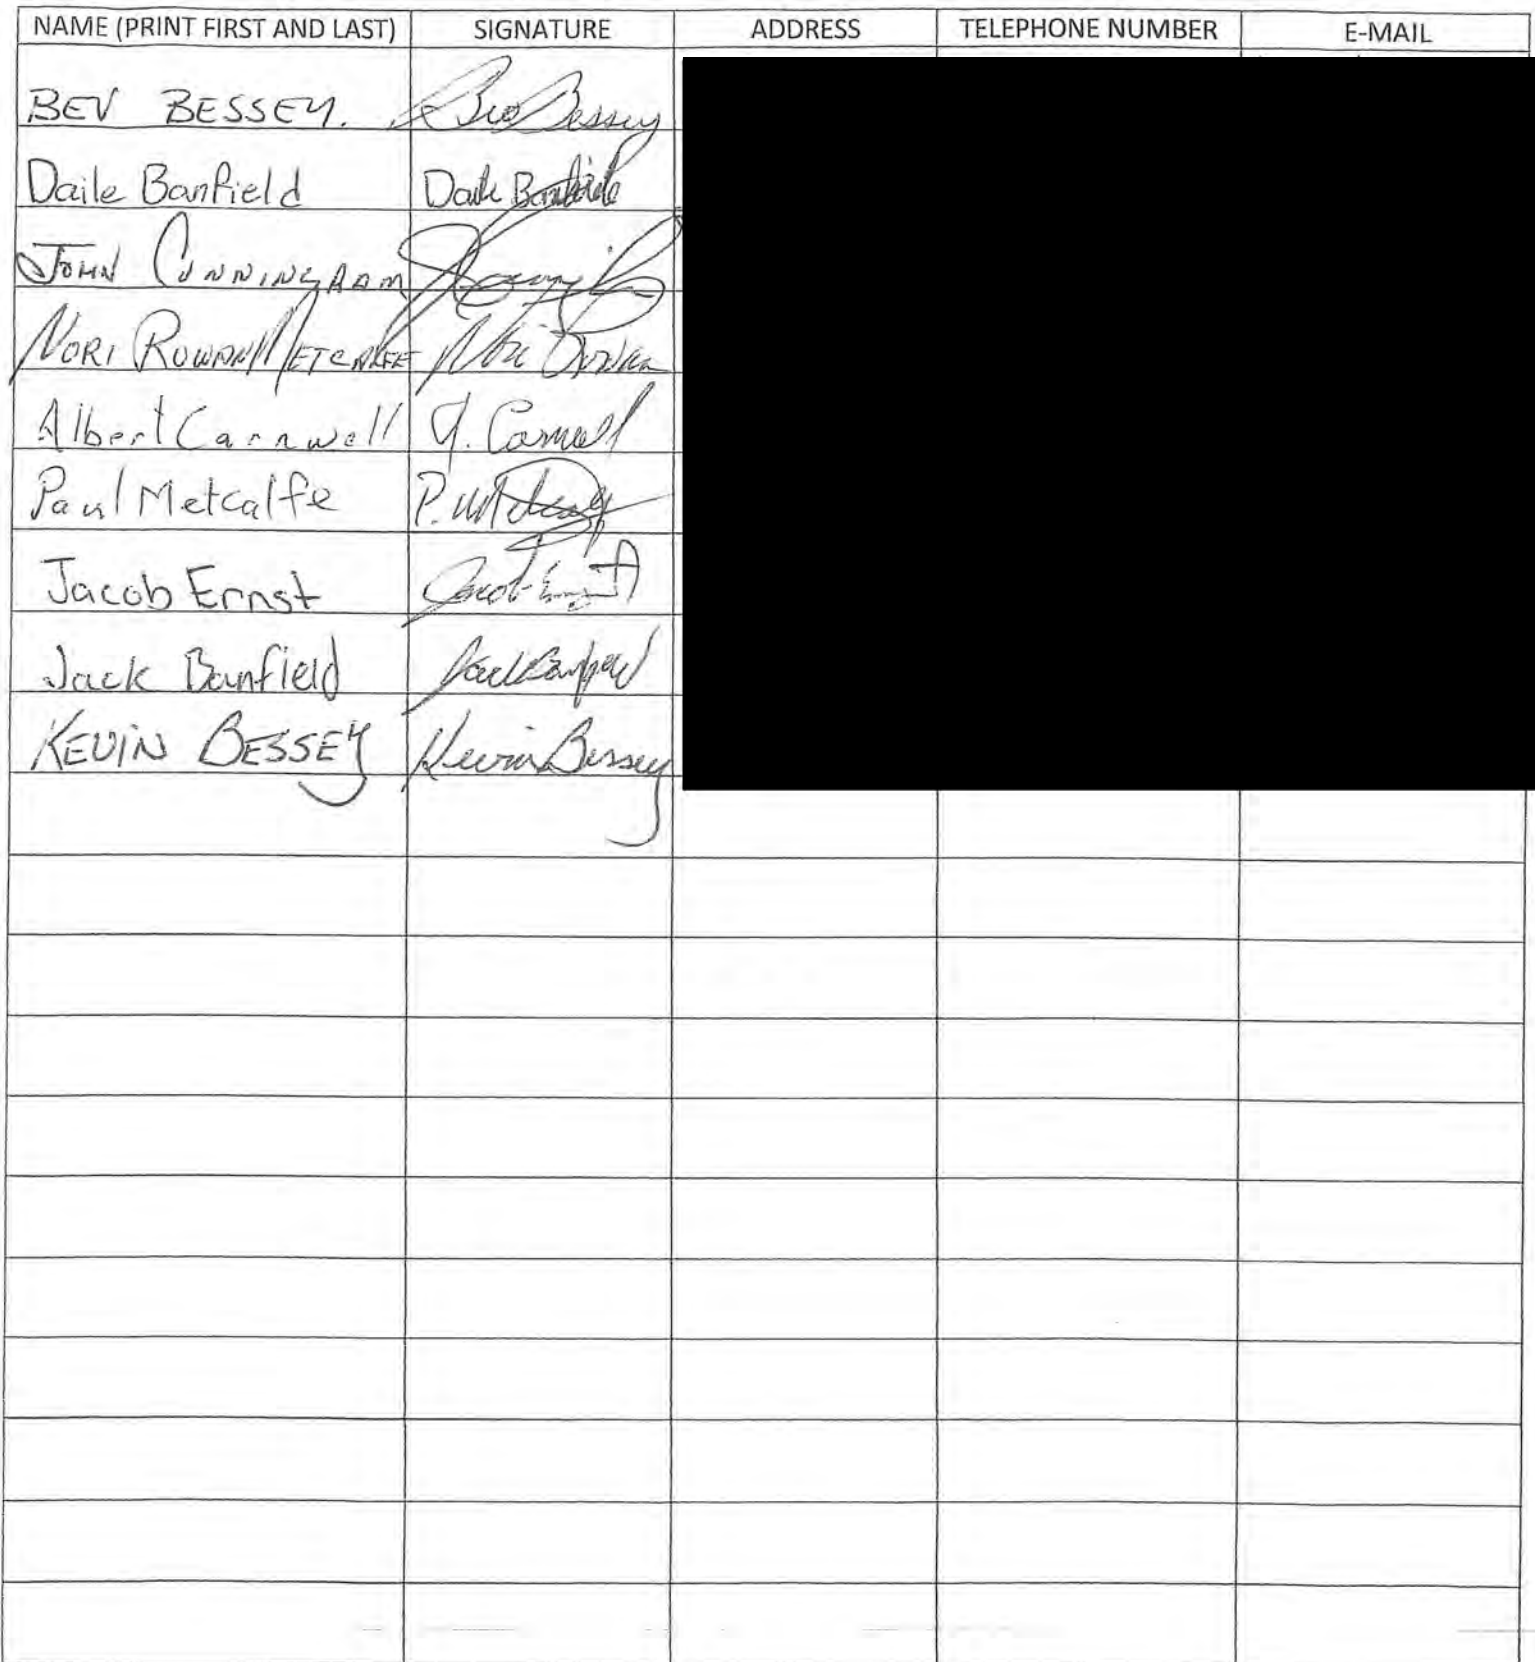 NAME (PRINT FIRST AND LAST) SIGNATURE ADDRESS TELEPHONE NUMBER E-MAIL
BEV BESSEY. Bev Bessey
Daile Banfield Daile Banfield
JOHN CUNNINGHAM
NORI ROWAN METCALFE Nori Rowan
Albert Carnwell A. Carnwell
Paul Metcalfe P. Metcalfe
Jacob Ernst Jacob Ernst
Jack Banfield Jack Banfield
KEVIN BESSEY Kevin Bessey